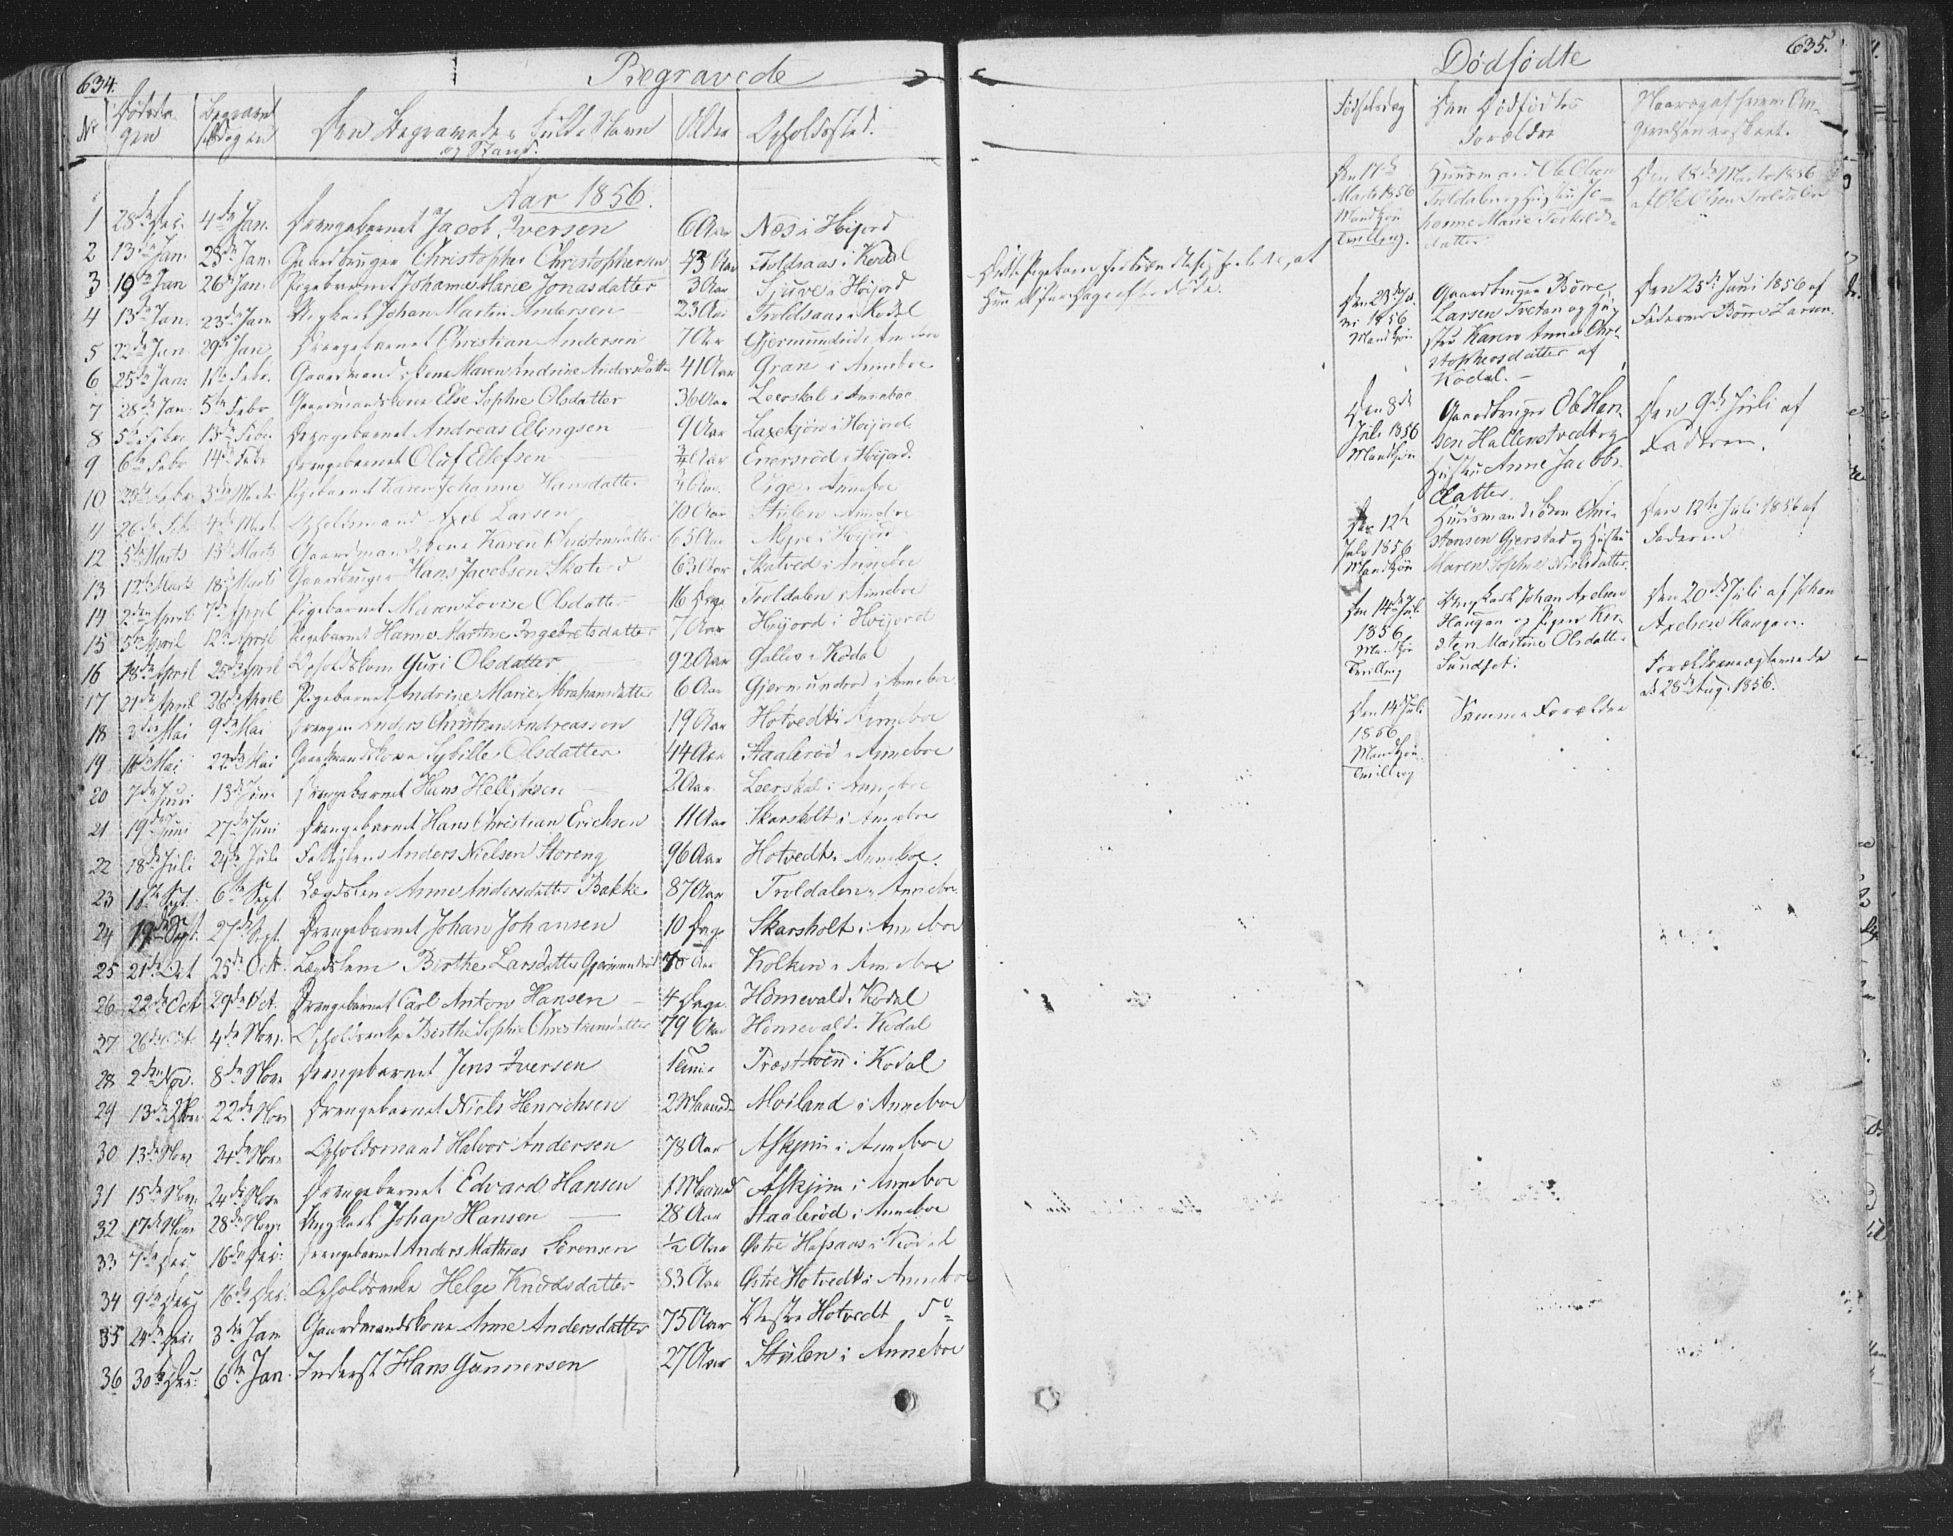 634.
Begravede
No
Dødsda-
gen
Begravel-
sesdagen
Den Begravedes fulde Navn
og Stand.
Alder
Opholdssted.
Aar 1856.
1 28de Dec. 4de Jan. Drengebarnet Jacob Iversen 6 Aar Næs i Høijord
2 13de Jan. 23de Jan. Gaardbruger Christopher Christophersen 43 Aar Troldsaas i Kodal
3 19de Jan 26de Jan. Pigebarnet Johanne Marie Jonasdatter 3 Aar Tjuve i Høijord
4 13de Jan. 23de Jan Ungkarl Johan Martin Andersen 23 Aar Troldsaas i Kodal
5 22de Jan 29de Jan Drengebarnet Christian Andersen 7 Aar Gjermundrød i Anneboe
6 25de Jan. 1ste Febr. Gaardmandskone Maren Andrine Andersdatter 41 Aar Gran i Anneboe
7 28de Jan 5te Febr Gaardmandskone Else Sophie Olsdatter 36 Aar Leerskal i Anneboe
8 5te Febr 13de Febr. Drengebarnet Andreas Ellingsen 9 Aar Laxekjøn i Høijord
9 6te Febr 14de Febr Drengebarnet Oluf Ellefsen 3/4 Aar Enersrød i Høijord.
10 Febr 3de Marts Pigebarnet Karen Johanne Hansdatter Aar. Vige i Anneboe
11 26de Feb. 4de Marts Opholdsmand Axel Larsen 70 Aar Stulen i Anneboe
12 5te Marts 13de Marts Gaardmandskone Karen Christensdatter 65 Aar Myre i Høijord
13 12te Marts 18de Marts Gaardbruger Hans Jacobsen Skatved 63 Aar Skatved i Anneboe
14 2den April 7de April Pigebarnet Maren Lovise Olsdatter 16 Dage Troldalen i Anneboe
15 5te April 12te April Pigebarnet Hanne Martine Ingebretsdatter 7 Aar Høijord i Høijord
16 18de April 25de April Opholdskone Guri Olsdatter 92 Aar Gallis i Kodal
17 21de April 26de April Pigebarnet Andrine Marie Abrahamsdatter 6 Aar Gjermundrød i Anneboe
18 3de Mai 9de Mai Drengen Anders Christian Andreassen 19 Aar Hotvedt i Anneboe
19 Mai 22de Mai Gaardmandskone Sybille Olsdatter 44 Aar Staalerød i Anneboe
20 7de Juni 13de Juni Drengebarnet Hans Helliksen 2 Aar. Leerskal i Anneboe
21 19de Juni 27de Juni Drengebarnet Hans Christian Erichsen 11 Aar Skarsholt i Anneboe
22 18de Juli 24de Juli Fattiglem Anders Nielsen Storeng 96 Aar Hotvedt i Anneboe.
23 1ste Sept. 6te Sept. Lægdslem Anne Andersdatter Bakke 87 Aar Troldalen i Anneboe
24 19de Sept. 27de Sept. Drengebarnet Johan Johansen 10 Dage Skarsholt i Anneboe
25 21de Oct 25de Oct. Lægdslem Birthe Larsdatter Gjermundrød 70 Aar Kolken i Anneboe
26 22de Oct 29de Oct. Drengebarnet Carl Anton Hansen 4 Dage Hømevald i Kodal
27 26de Oct. 4de Nov. Opholdsenke Birthe Sophie Christensdatter 79 Aar Hømevald i Kodal
28 2den Nov. 8de Nov Drengebarnet Jens Iversen Præsthuen i Kodal
29 13de Nov 22de Nov Drengebarnet Niels Henrichsen 2 Maaneder Moiland i Anneboe
30 13de Nov 24de Nov Opholdsmand Halvor Andersen 78 Aar Askjem i Anneboe
31 15de Nov. 24de Nov Drengebarnet Edvard Hansen 1 Maaned Askjem i Anneboe
32 17de Nov 28de Nov Ungkarl Johan Hansen 28 Aar Staalerød i Anneboe
33 7de Dec. 16de Dec. Drengebarnet Anders Mathias Sørensen 1/2 Aar Østre Hasaas i Kodal
34 9de Dec. 16de Dec. Opholdsenke Helge Knudsdatter 83 Aar Østre Hotvedt i Anneboe
35 24de Dec. 3de Jan Gaardmandskone Anne Andersdatter 75 Aar Vestre Hotvedt Do
36 30te Dec. 6te Jan. Inderst Hans Gunnersen 27 Aar Stulen i Anneboe
Dødfødte
635.
Fødselsdag
Den Dødfødtes
Forældre
Naar og af hvem An-
givelsen er skeet.
Dette Pigebarn at
hun et Par Dage efter døde.
Den 17de
Marts 1856
Mandkjøn
Tvilling.
Huusmand Ole Olsen
Troldalen og Hustru Jo-
hanne Marie Terkilds-
datter
Den 18de Marts 1856
af Ole Olsen Troldalen
Den 23de Ju-
ni 1856
Mandkjøn
Gaardbruger Børre
Larsen Tvetan og Hu-
stru Karen Anne Chri-
stophersdatter af
Kodal.
Den 25de Juni 1856 af
Faderen Børre Larsen
Den 8de
Juli 1856
Mandkjøn
Gaardbruger Ole Han-
sen Hallenstvedt og
Hustru Anne Jacobs-
datter.
Den 9de Juli af
Faderen.
Den 12te
Juli 1856
Mandkjøn
Huusmand Søren Chri-
stensen Gjerstad og Hustru
Maren Sophie Nielsdatter.
Den 12te Juli 1856 af
Faderen
Den 14de Juli
1856
Mandkjøn
Tvilling
Ungkarl Johan Axelsen
Haugan og Pigen Kir-
sten Martine Olsdatter
Sundset.
Den 20de Juli af Johan
Axelsen Haugan.
Forældrene ægteviede
d. 28de Aug. 1856.
Den 14de Juli
1856
Mandkjøn
Tvilling
Samme Forældre